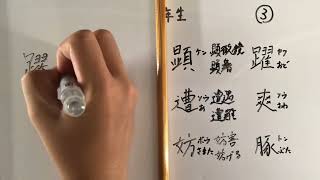 年生 ③
顕 ケン 顕微鏡 顕著
躍 ヤク おど
遭 ソウ あ 遭遇 遭難
爽 ソウ さわ
妨 ボウ さまた 妨害 妨げる
豚 トン ぶた